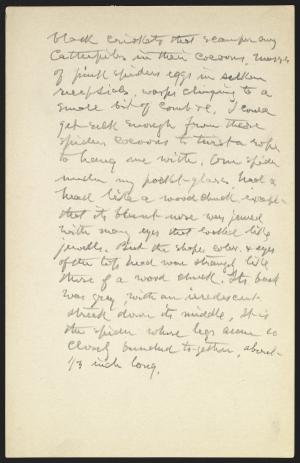 black crickets that scamper away
Catterpillar in their cocoons, masses
of pink spiders eggs in silken
receptacles, wasps clinging to a
small bit of comb &c. I could
get silk enough from these
spiders cocoons to twist a rope
to hang one with. One spider
under my pocket-glass had a
head like a wood chuck except
that its blunt nose was jewed
with many eyes that looked like
jewells. But the shape, color, & eyes
of the top head was strangely like
those of a wood chuck. Its back
was gray, with an iredescent
streak down its middle, It is
the spider whose legs seem so
closely bunched together, about
1/3 inch long.